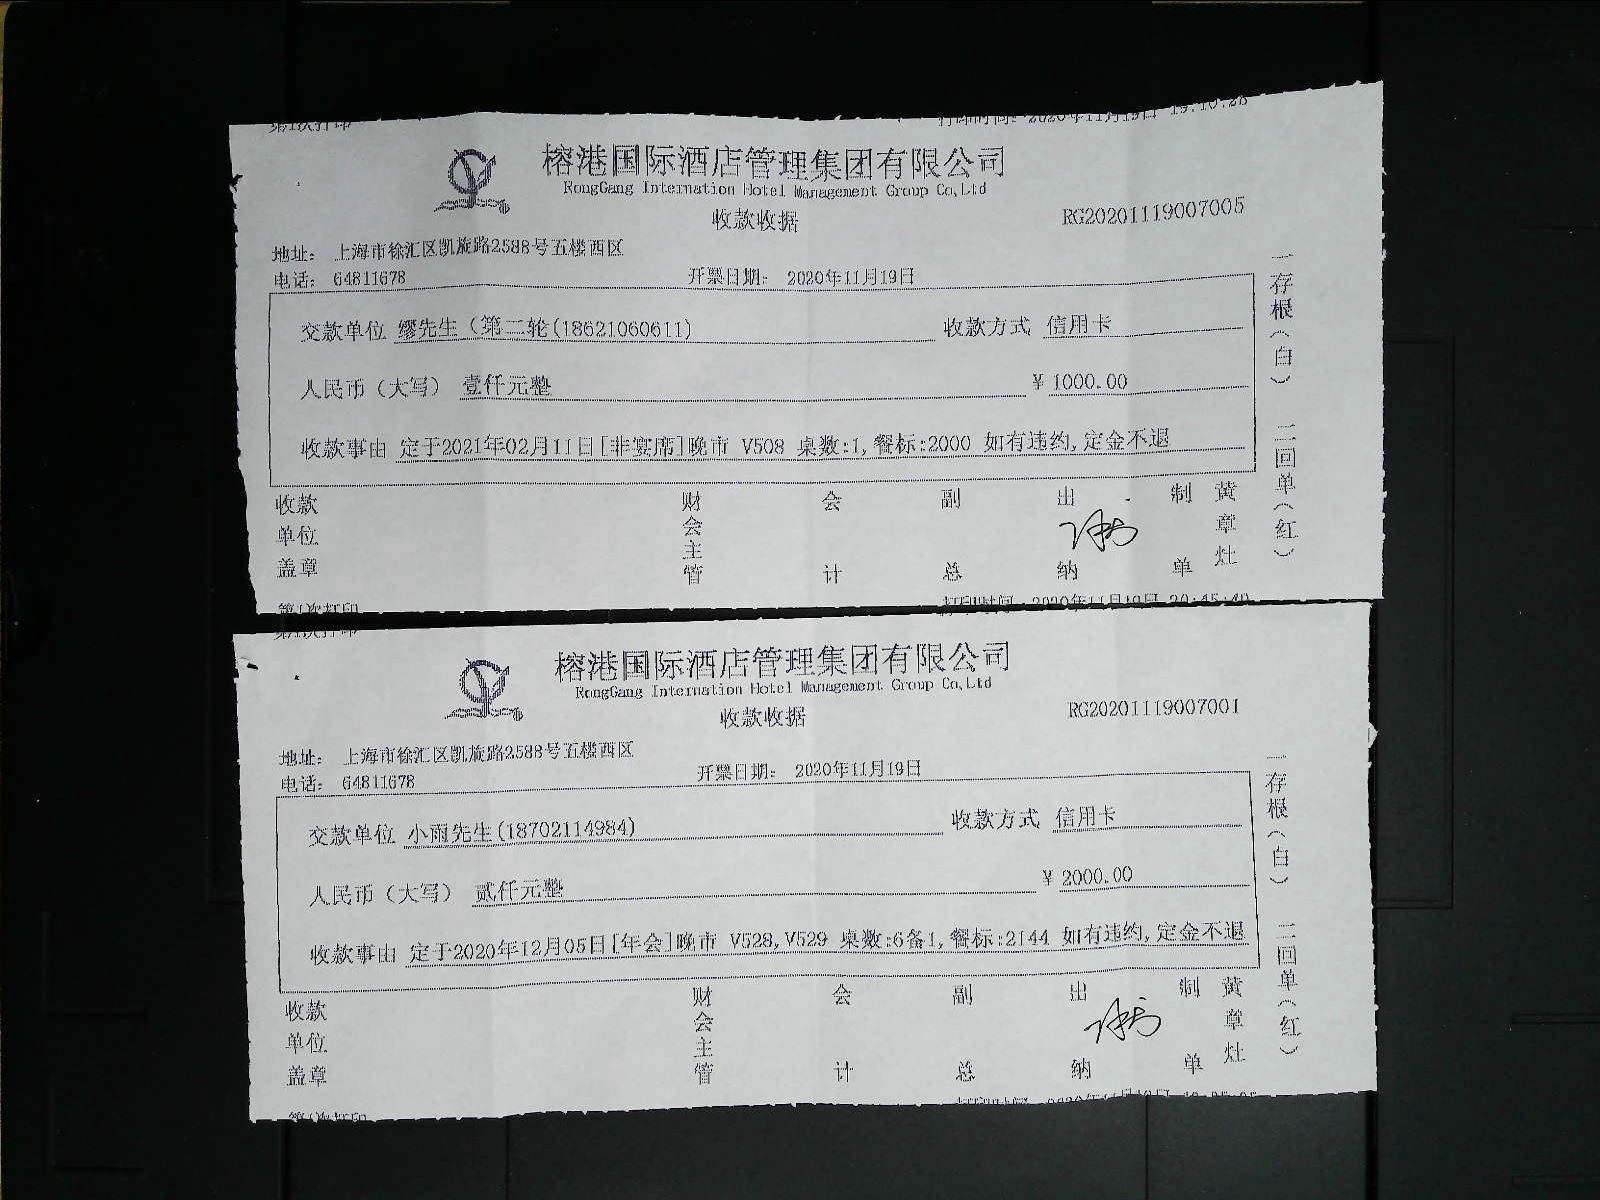 第1次打印 打印时间：2020年11月19日 19:10:28
榕港国际酒店管理集团有限公司
RongGang Internation Hotel Management Group Co,Ltd
收款收据 RG20201119007005
地址： 上海市徐汇区凯旋路2588号五楼西区
电话： 64811678 开票日期： 2020年11月19日
交款单位 缪先生（第二轮(18621060611) 收款方式 信用卡
人民币（大写） 壹仟元整 ￥ 1000.00
收款事由 定于2021年02月11日[非宴席]晚市 V508 桌数:1,餐标:2000 如有违约,定金不退
收款单位盖章 财会主管 会计 副总 出纳 制单 黄章灶
一存根（白） 二回单（红）
第1次打印 打印时间：2020年11月19日 20:45:49
第1次打印
榕港国际酒店管理集团有限公司
RongGang Internation Hotel Management Group Co,Ltd
收款收据 RG20201119007001
地址： 上海市徐汇区凯旋路2588号五楼西区
电话： 64811678 开票日期： 2020年11月19日
交款单位 小雨先生(18702114984) 收款方式 信用卡
人民币（大写） 贰仟元整 ￥ 2000.00
收款事由 定于2020年12月05日[年会]晚市 V528,V529 桌数:6备1,餐标:2144 如有违约,定金不退
收款单位盖章 财会主管 会计 副总 出纳 制单 黄章灶
一存根（白） 二回单（红）
第1次打印 打印时间